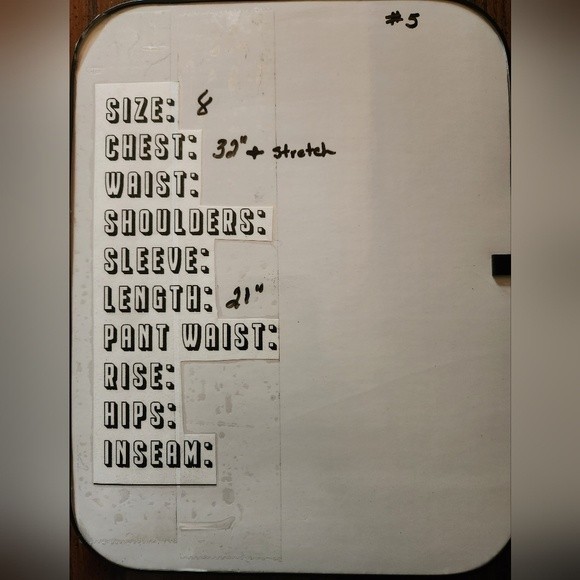 #5
SIZE: 8
CHEST: 32" + stretch
WAIST:
SHOULDERS:
SLEEVE:
LENGTH: 21"
PANT WAIST:
RISE:
HIPS:
INSEAM: